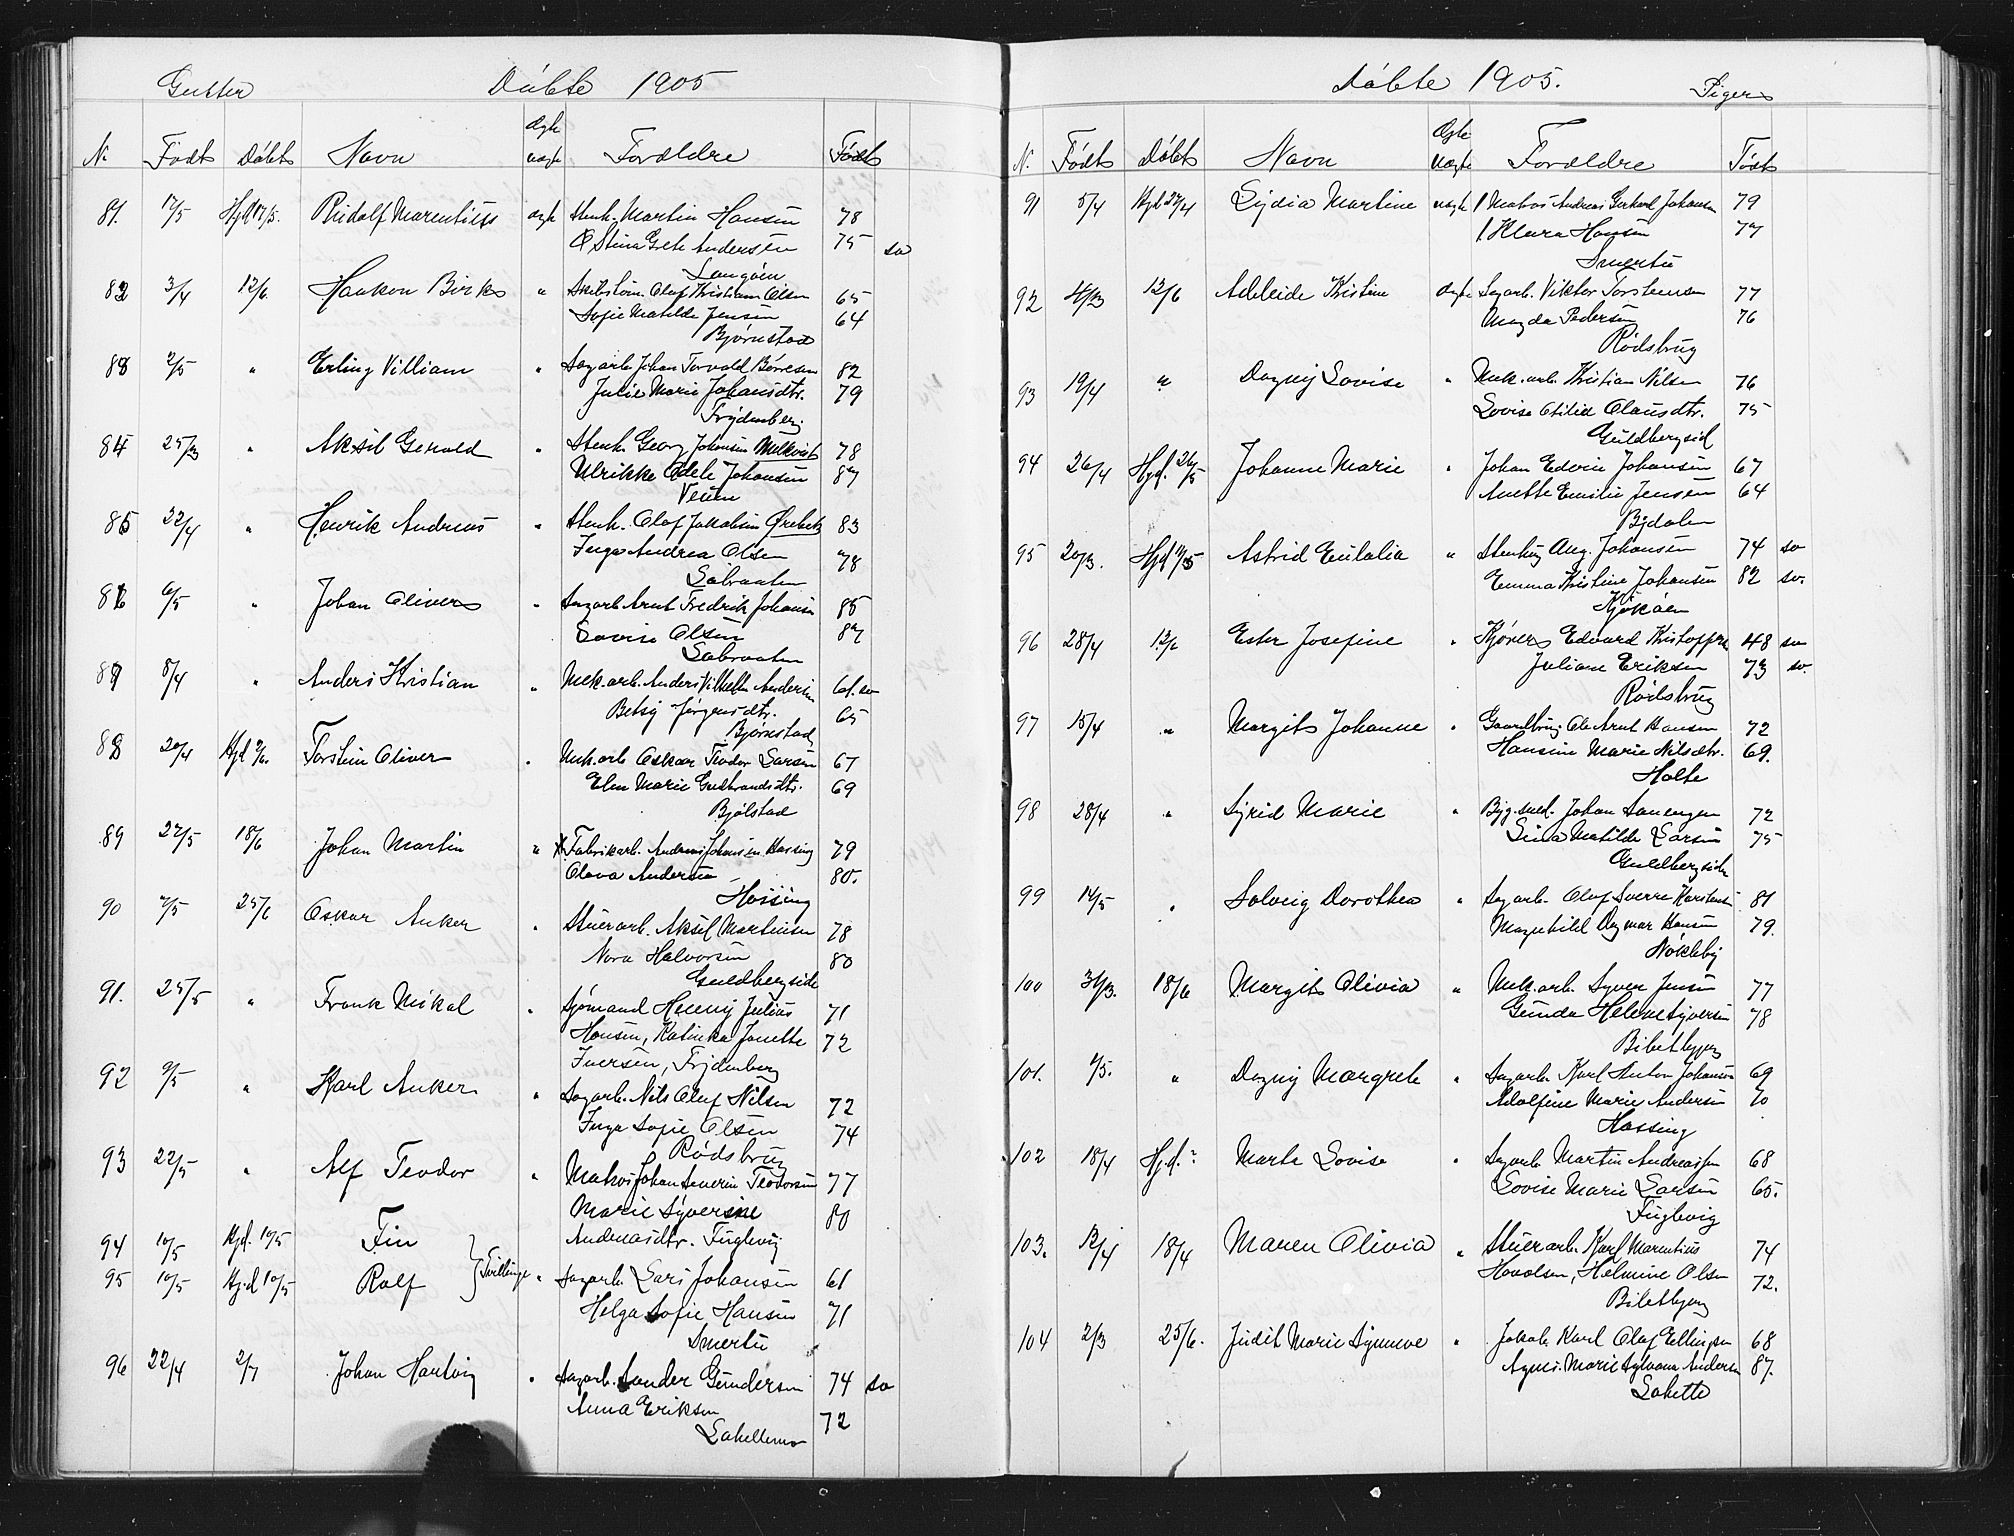 Gutter Døbte 1905
N. Født Døbt Navn Ægte uægte Forældre Født
81. 17/5 Hjd 17/5. Rudolf Marentius ægte Stenh. Martin Hansen 78
Stina Grete Andersen 75 sv
Langøen
82 3/4 12/6. Haakon Birk " Skibstøm. Oluf Kristian Olsen 65
Sofie Matilde Jensen 64
Bjørnstad
83 2/5 " Erling Villiam " Sagarb. Johan Torvald Børresen 82
Julie Marie Johansdtr. 79
Frydenberg.
84 25/3 " Aksel Gerald " Stenh. Georg Johansen Melkvist 78
Ulrikke Odele Johansen 87
Veum
85 22/4 " Henrik Andreas " Stenh. Olaf Jakobsen Ørebek 83
Inga Andrea Olsen 78
Labraaten
86 6/5 " Johan Oliver " Sagarb. Arnt Fredrik Johansen 85
Lovise Olsen 87
Labraaten
87 8/4 " Anders Kristian " Mek. arb. Anders Vilhelm Andersen 61. sv
Betsy Jørgensdtr. 65
Bjørnstad
88 20/4 Hjd /6. Torstein Oliver " Mek. arb. Oskar Teodor Larsen 67
Elen Marie Gudbrandsdtr. 69
Bjølstad
89 27/5 18/6 Johan Martin " Fabrikarb. Andreas Johansen Hassing 79
Olava Andersen 80.
Hassing
90 7/5 25/6 Oskar Anker " Stuerarb. Aksel Martinsen 78
Nora Halvorsen 80
Guldbergside
91. 25/5 " Frank Mikal " Sjømand Henny Julius 71
Hansen, Katinka Janette 72
Iversen, Frydenberg
92 9/5 " Karl Anker " Sagarb. Nils Oluf Nilsen 72
Inga Sofie Olsen 74
Rødsbrug
93 22/5 " Alf Teodor " Matros Johan Severin Teodorsen 77
Marie Syverine 80
Andreasdtr. Fuglevig
94 10/5 Hjd. 10/5 Fin
95 10/5 Hjd 10/5 Rolf } Tvillinge " Sagarb. Lars Johansen 61
Helga Sofie Hansen 71
Smertu
96 22/4 2/7 Johan Hartvig " Sagarb. Sander Gundersen 74 sv
Anna Eriksen 72
Lahellemo
Døbte 1905. Piger
N. Født Døbt Navn Ægte uægte Forældre Født
91 5/4 Hjd 27/4 Lydia Martine uægte f Matros Andreas Gerhard Johansen 79
f. Klara Hansen 77
Smertu
92 4/3 12/6 Adeleide Kristine ægte Sagarb. Viktor Torstensen 77
Magda Pedersen 76
Rødsbrug
93 19/4 " Dagny Lovise " Mek. arb. Kristian Nilsen 76
Lovise Otilie Olausdtr. 75
Guldbergsid
94 26/4 Hjd. 26/5 Johanne Marie " Johan Edvin Johansen 67
Anette Emilie Jensen 64
Bjdalen
95 20/3. Hjd 11/5 Astrid Eulalia " Stenhug Aug. Johansen 74 sv
Emma Kristine Johansen 82 sv.
Kjøkøen
96 28/4 12/6 Ester Josefine " Kjører Edvard Kristoffer 48 sv
Juliane Eriksen 73 sv.
Rødsbrug
97 15/4 " Margit Johanne " Gaardbrug. Ole Arnt Hansen 72
Hansine Marie Nilsdtr. 69.
Holte
98 28/4 " Sigrid Marie " Byg. med. Johan Sanengen 72
Lina Matilde Larsen 75
Guldbergside
99 14/5 " Solveig Dorothea " Sagarb. Oluf Sverre Karstensen 81
Magnhild Dagmar Hansen 79.
Nøkleby
100 31/3. 18/6 Margit Olivia " Mek. arb. Syver Jensen 77
Gunda Helene Syversen 78
Biletbyen
101. 4/5. " Dagny Margrete " Sagarb. Karl Anton Johansen 69
Adolfine Marie Andersen 70
Hassing
102 18/4 Hj.d. " Marte Lovise " Sagarb. Martin Andreassen 68
Lovise Marie Larsen 65.
Fuglevig
103. 12/4 18/4 Maren Olivia " Stuerarb. Karl Marentius 74
Haralsen, Helmine Olsen 72.
Biletbyen
104 2/3 25/6. Judit Marie Synnøve " Jakob Karl Olaf Ellingsen 68
Agnes Marie Sylvana Andersen 87.
Lahelle